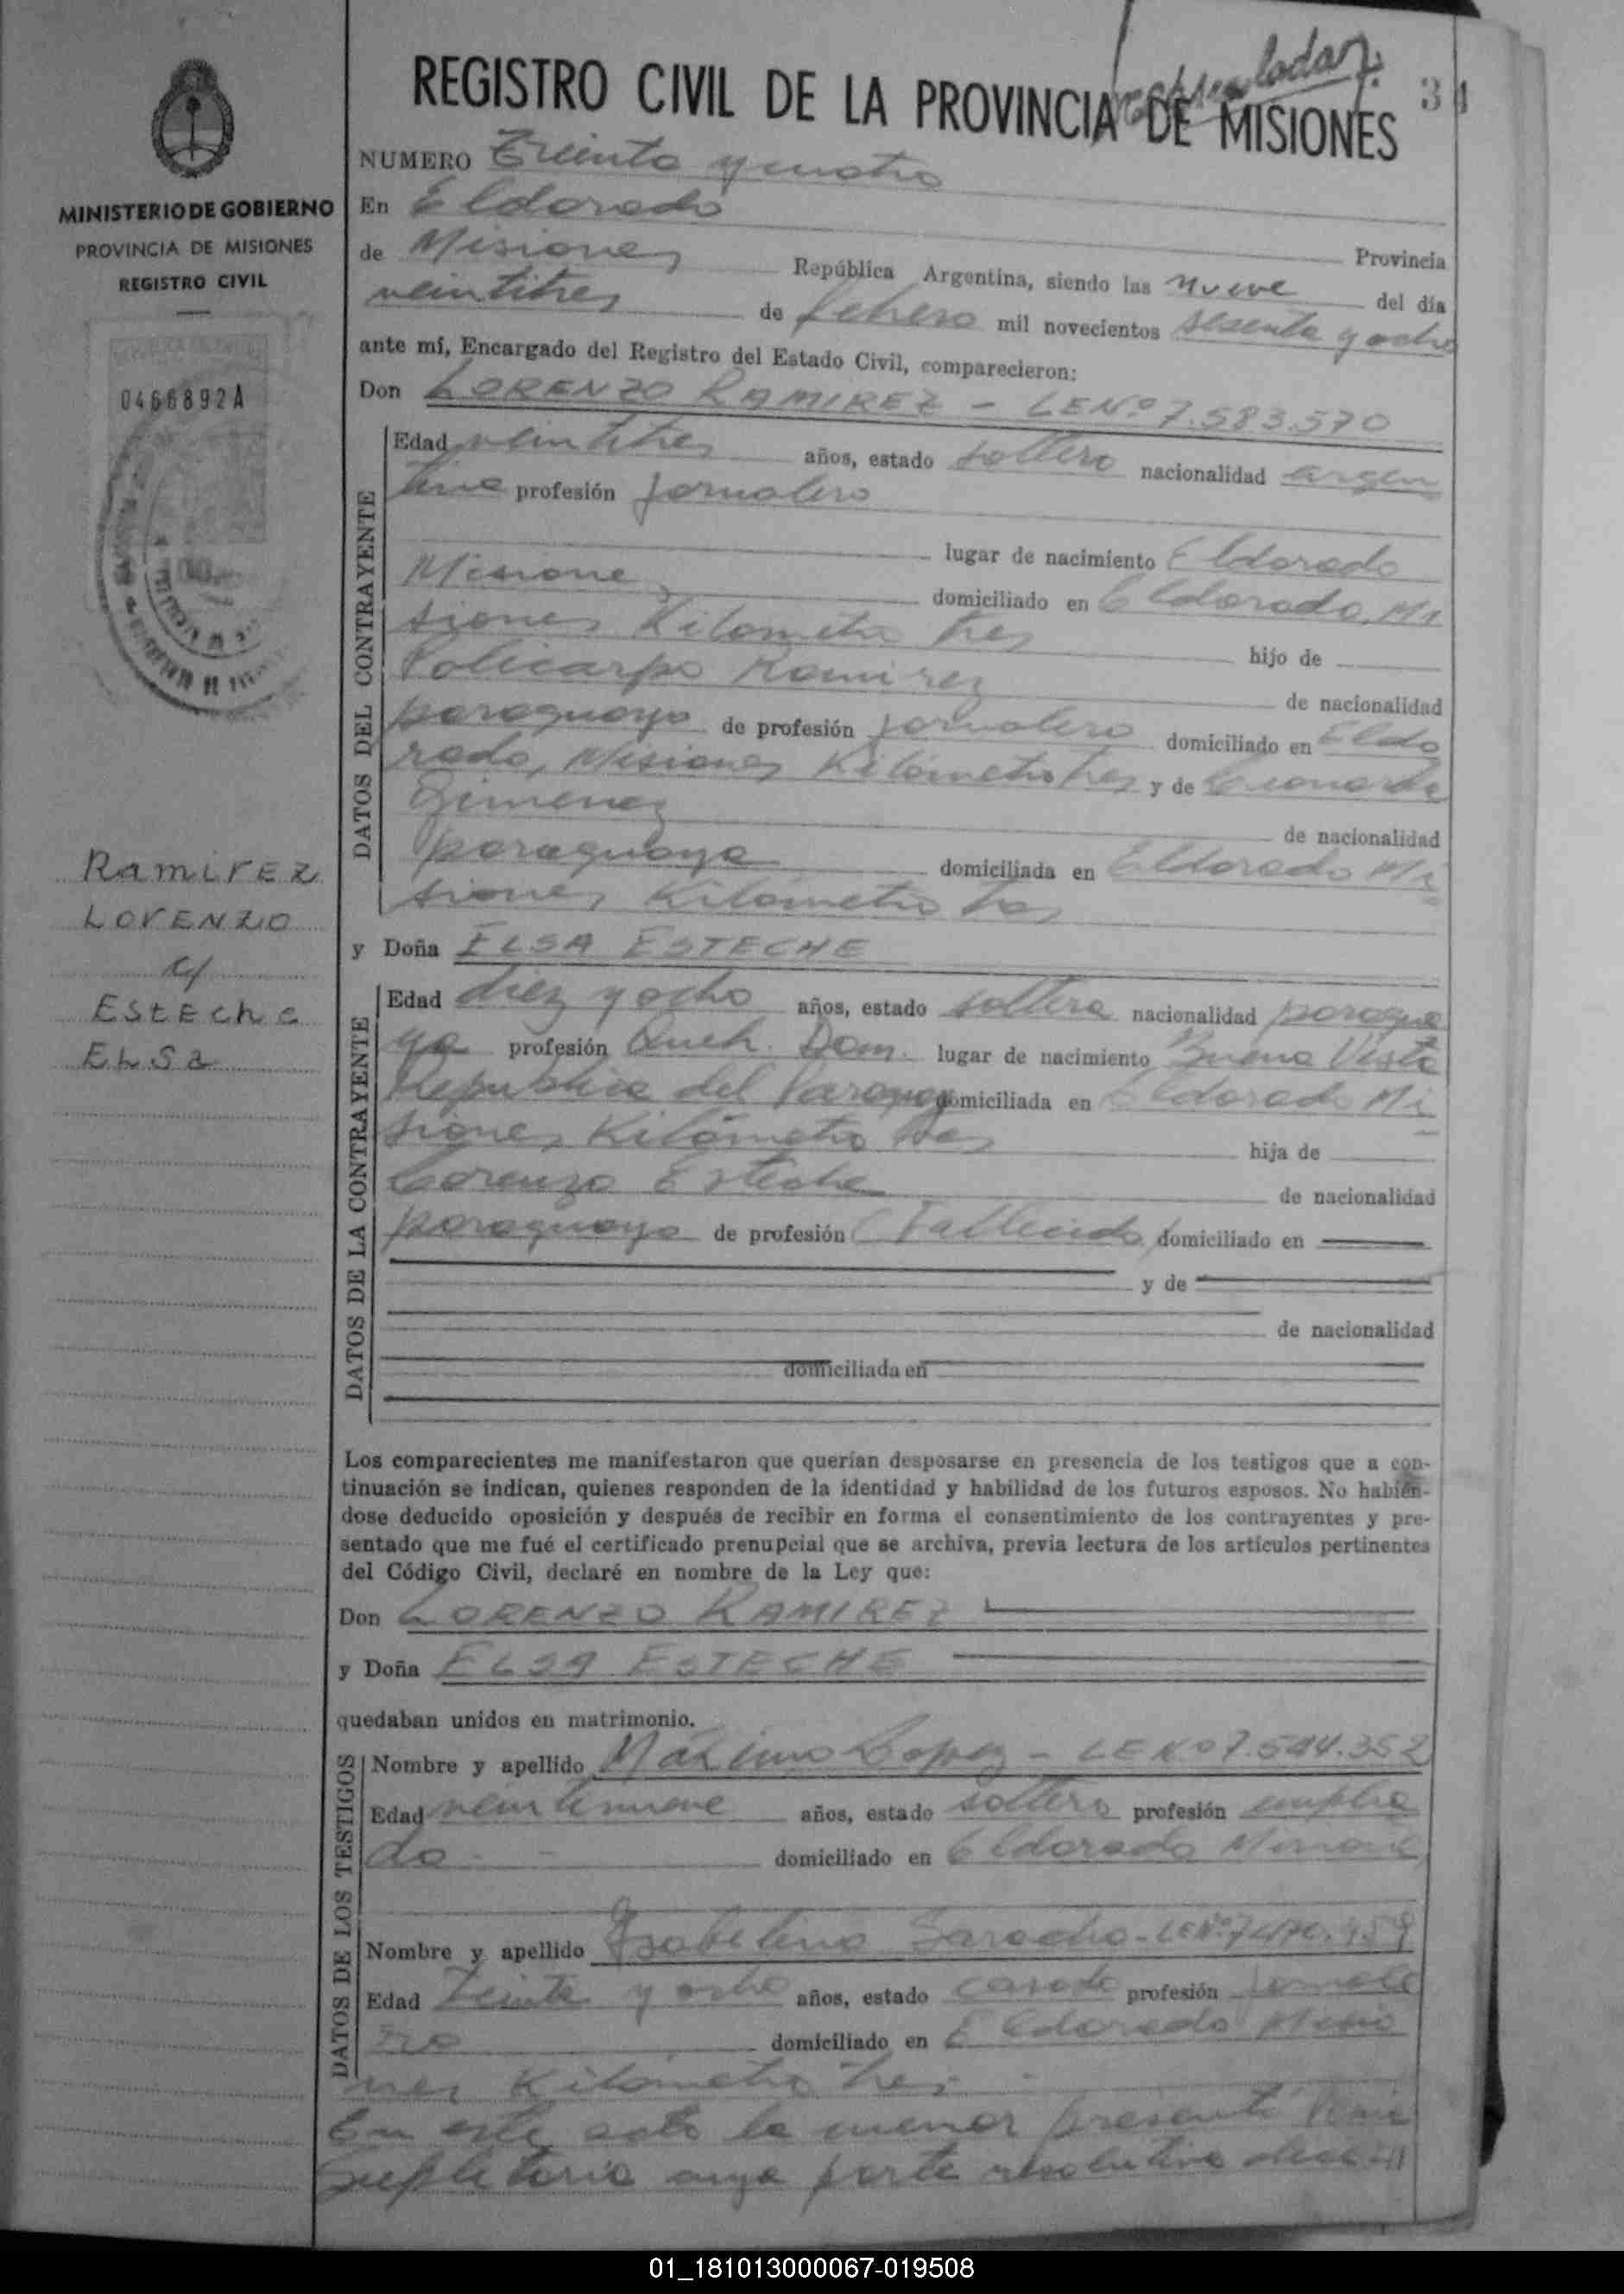 REGISTRO CIVIL DE LA PROVINCIA DE MISIONES
34
MINISTERIO DE GOBIERNO
PROVINCIA DE MISIONES
REGISTRO CIVIL
0466892A
Ramirez
Lorenzo
c/
Esteche
Elsa
NUMERO Treinta y cuatro
En Eldorado Provincia
de Misiones República Argentina, siendo las nueve del día
veintitres de febrero mil novecientos sesenta y ocho
ante mí, Encargado del Registro del Estado Civil, comparecieron:
Don LORENZO RAMIREZ - LE Nº 7.583.570
DATOS DEL CONTRAYENTE
Edad veintitres años, estado soltero nacionalidad argen
tina profesión jornalero
lugar de nacimiento Eldorado
Misiones domiciliado en Eldorado, Mi
siones Kilometro tres hijo de
Policarpo Ramirez de nacionalidad
paraguayo de profesión jornalero domiciliado en Eldo
rado, Misiones Kilómetro tres y de Leonarda
Gimenez de nacionalidad
paraguaya domiciliada en Eldorado Mi
siones Kilómetro tres
y Doña ELSA ESTECHE
DATOS DE LA CONTRAYENTE
Edad diez y ocho años, estado soltera nacionalidad paragua
ya profesión Queh. Dom. lugar de nacimiento Buena Vista
Republica del Paraguay domiciliada en Eldorado Mi
siones Kilómetro tres hija de
Lorenzo Esteche de nacionalidad
paraguayo de profesión (Fallecido) domiciliado en
y de
de nacionalidad
domiciliada en
Los comparecientes me manifestaron que querían desposarse en presencia de los testigos que a con-
tinuación se indican, quienes responden de la identidad y habilidad de los futuros esposos. No habién-
dose deducido oposición y después de recibir en forma el consentimiento de los contrayentes y pre-
sentado que me fué el certificado prenupcial que se archiva, previa lectura de los artículos pertinentes
del Código Civil, declaré en nombre de la Ley que:
Don LORENZO RAMIREZ
y Doña ELSA ESTECHE
quedaban unidos en matrimonio.
DATOS DE LOS TESTIGOS
Nombre y apellido Máximo Lopez - LE Nº 7.544.352
Edad veintinueve años, estado soltero profesión emplea
do domiciliado en Eldorado Misiones
Nombre y apellido Isabelino - LE Nº
Edad treinta y ocho años, estado casado profesión jornale
ro domiciliado en Eldorado Misio
nes Kilómetro tres.
En este acto la menor presentó Venia
Supletoria cuya parte resolutiva dice:
01_181013000067-019508